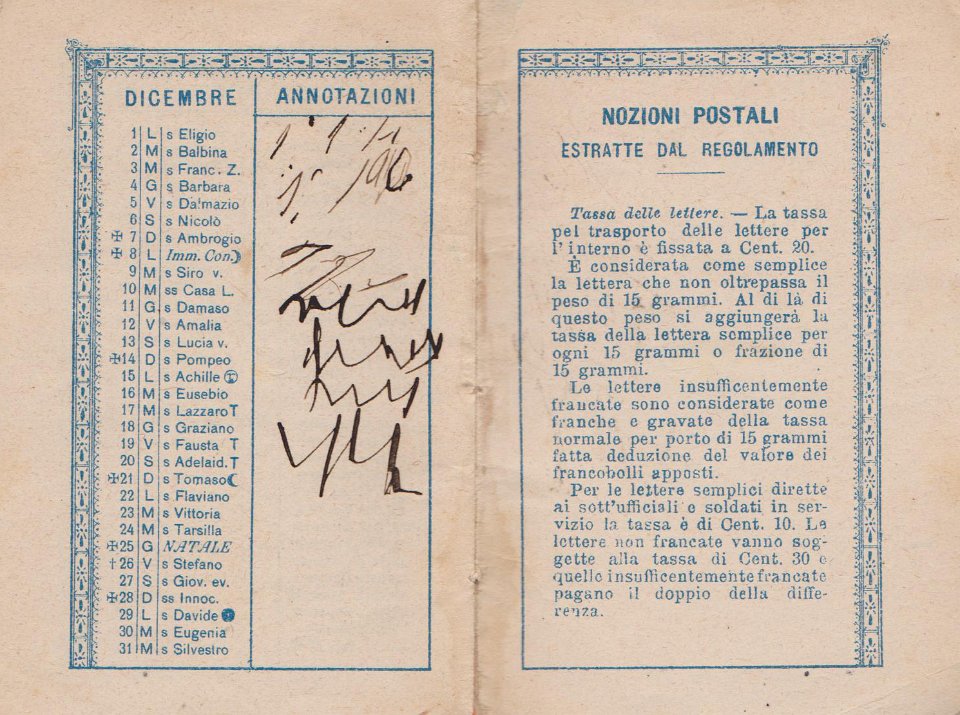 DICEMBRE
ANNOTAZIONI
1 L s Eligio
2 M s Balbina
3 M s Franc. Z.
4 G s Barbara
5 V s Dalmazio
6 S s Nicolò
✠ 7 D s Ambrogio
✠ 8 L Imm. Con.
9 M s Siro v.
10 M ss Casa L.
11 G s Damaso
12 V s Amalia
13 S s Lucia v.
✠14 D s Pompeo
15 L s Achille
16 M s Eusebio
17 M s Lazzaro T
18 G s Graziano
19 V s Fausta T
20 S s Adelaid. T
✠21 D s Tomaso
22 L s Flaviano
23 M s Vittoria
24 M s Tarsilla
✠25 G NATALE
†26 V s Stefano
27 S s Giov. ev.
✠28 D ss Innoc.
29 L s Davide
30 M s Eugenia
31 M s Silvestro
NOZIONI POSTALI
ESTRATTE DAL REGOLAMENTO
Tassa delle lettere. — La tassa
pel trasporto delle lettere per
l'interno è fissata a Cent. 20.
È considerata come semplice
la lettera che non oltrepassa il
peso di 15 grammi. Al di là di
questo peso si aggiungerà la
tassa della lettera semplice per
ogni 15 grammi o frazione di
15 grammi.
Le lettere insufficentemente
francate sono considerate come
franche e gravate della tassa
normale per porto di 15 grammi
fatta deduzione del valore dei
francobolli apposti.
Per le lettere semplici dirette
ai sott'ufficiali e soldati in ser-
vizio la tassa è di Cent. 10. Le
lettere non francate vanno sog-
gette alla tassa di Cent. 30 e
quelle insufficentemente francate
pagano il doppio della diffe-
renza.